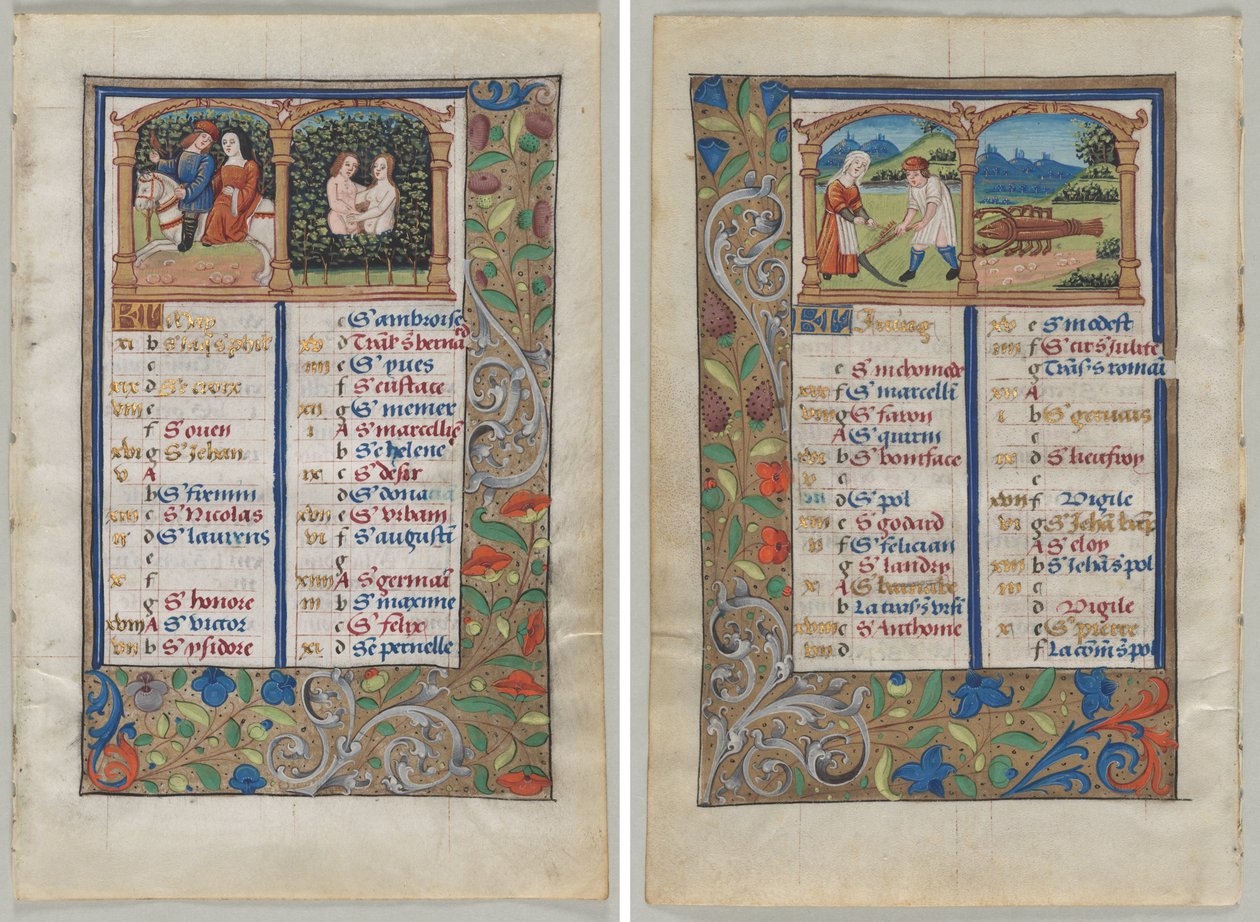 KL May
xi b S iaq s phil
c
xix d Ste croix
viii e
f S ouen
xvi g S Jehan
v A
b S firmin
xiii c S Nicolas
ii d S laurens
e
x f
g S honore
xviii A S victor
vii b S ysidore
c S ambroise
xv d Trasl s berna ed
iiii e S yues
f S eustace
xii g S memer
i A S marcelli
b Ste helene
ix c S desir
d S dona
xvii e S vrbain
vi f S augusti
g
xiiii A S germai
iii b S maxime
c S felix
xi d Ste pernelle
KL Juing
e S nichomede
f S marcelli
viii g S faron
A S quirin
b S boniface
v c
d S pol
xiii e S godard
ii f S felician
g S landry
x A S barnabe
b La tras s vrsi
xviii c S Anthoine
vii d
xv e S modest
iiii f S cir s Julite
g Tras s romai
xii A
i b S geruais
c
ix d S lieufroy
e
xvii f Vigile
vi g S Jehan
A S eloy
xiiii b S Jehan s pol
iii c
d Vigile
xi e S pierre
f La com s pol